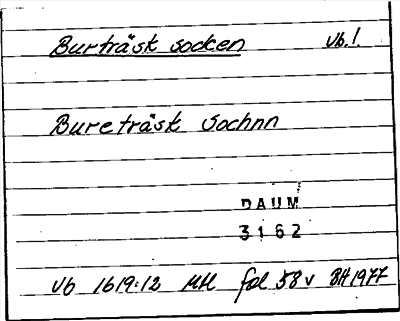 Burträsk socken Vb.!.
Bureträsk Sochnn
DAUM
3162
Vb 1619:12 MH fol 58v BH 1977